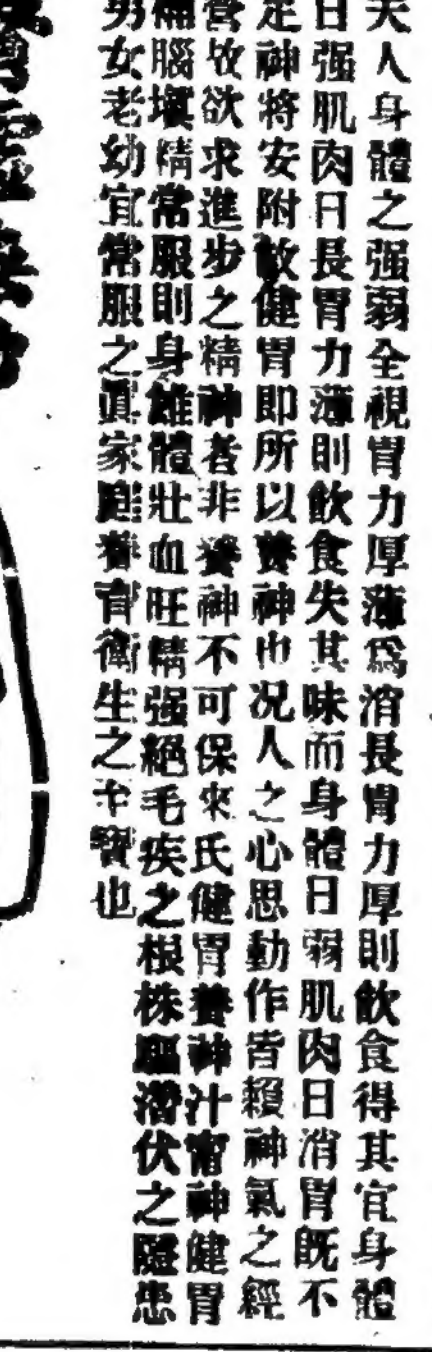 夫人身體之强弱全視胃力厚薄爲消長胃力厚則飲食得其宜身體
日强肌肉日長胃力薄則飲食失其味而身體日弱肌肉日消胃既不
足神將安附故健胃即所以養神也况人之心思動作皆賴神氣之經
營故欲求進步之精神者非養神不可保來氏健胃養神汁甯神健胃
補腦塡精常服則身雄體壯血旺精强絕毛疾之根株驅潛伏之隱患
男女老幼宜常服之眞家庭養育衛生之宝也